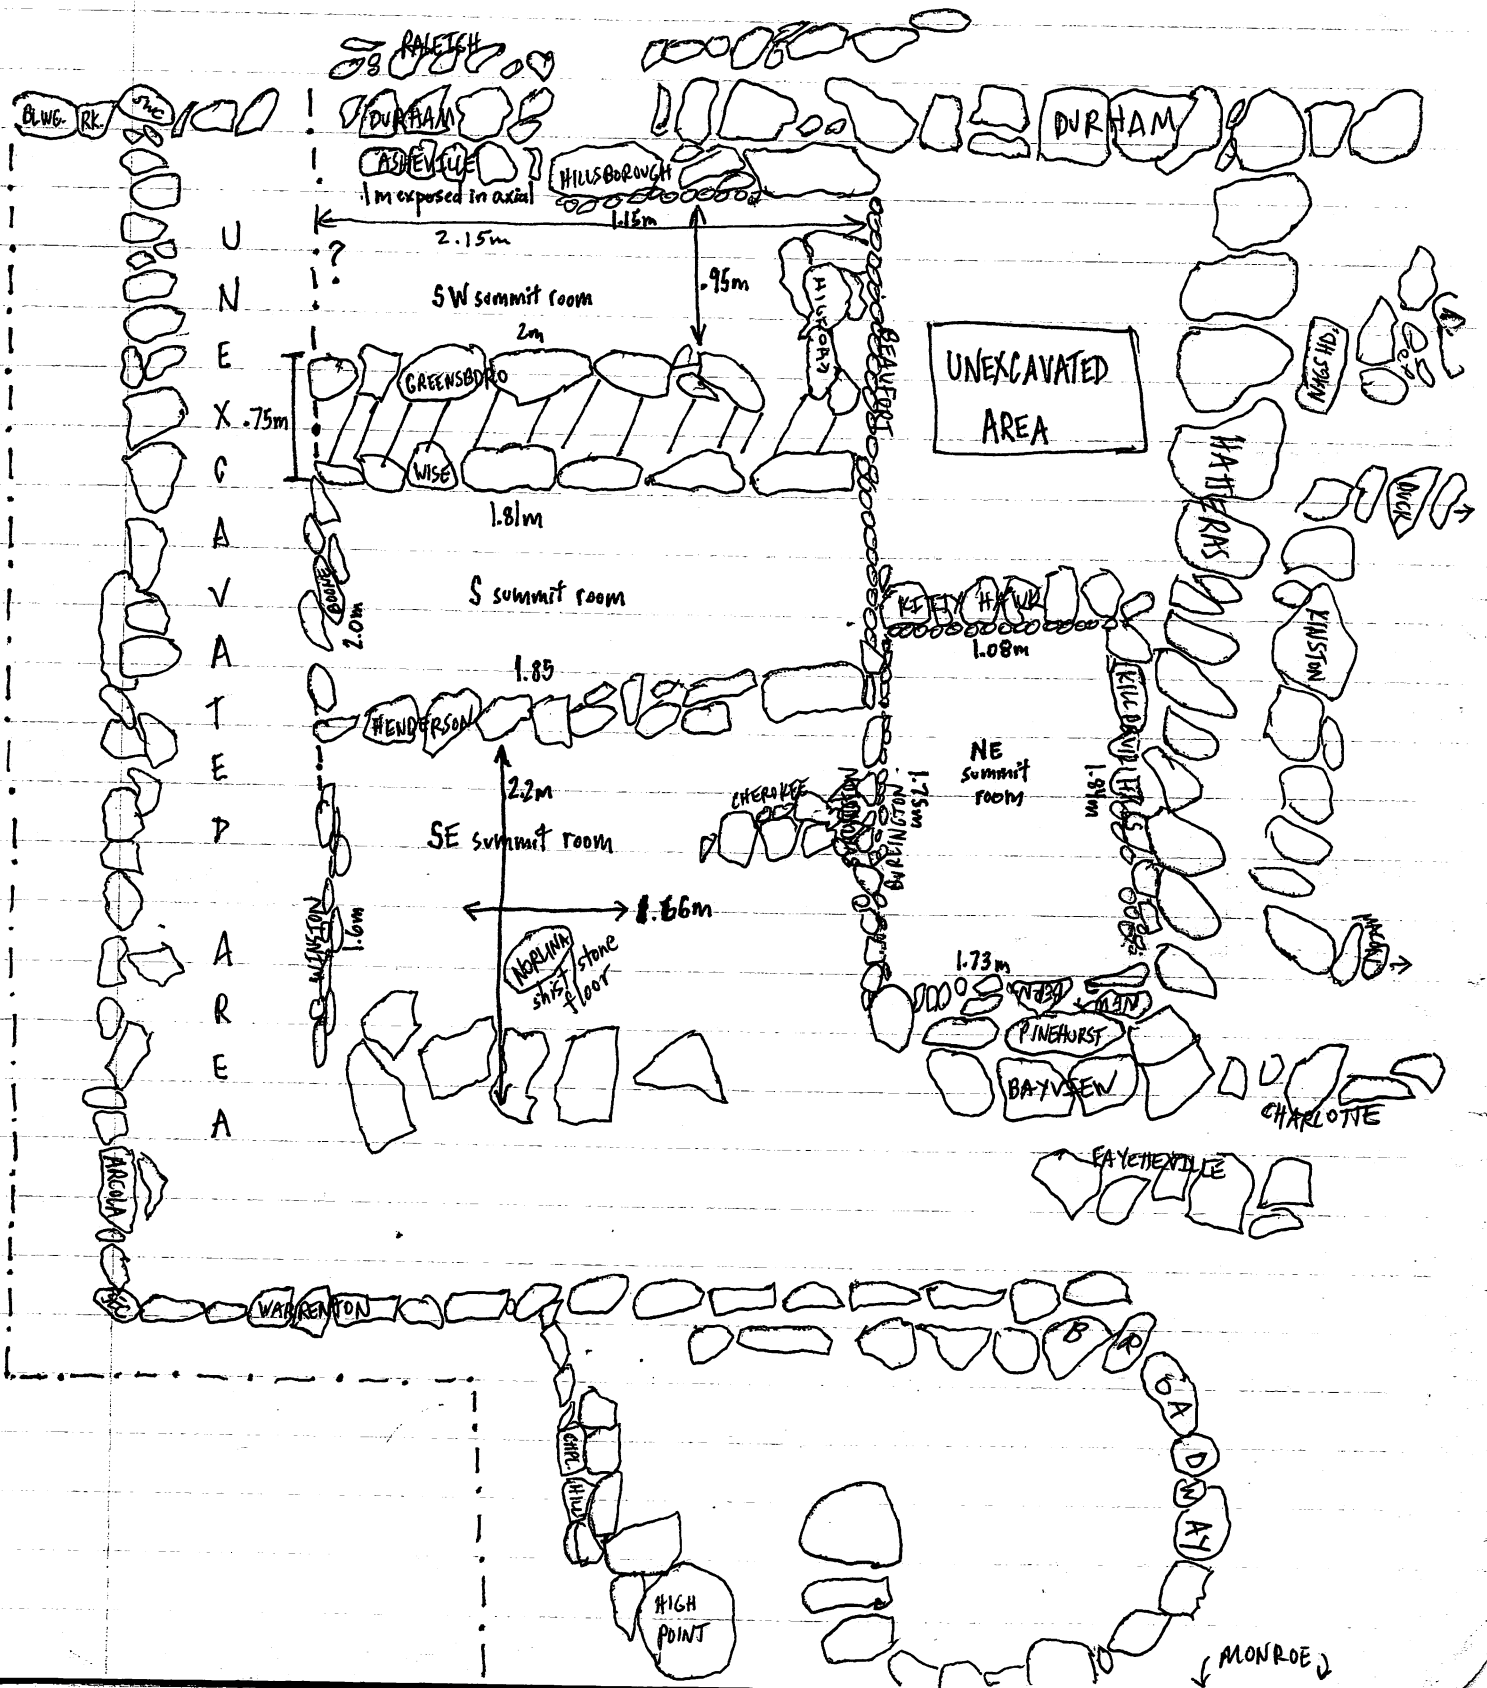 RALEIGH
BLWG. RK. SWC
DURHAM
DURHAM
ASHEVILLE
HILLSBOROUGH
.1m exposed in axial
1.15m
2.15m
?
SW summit room
.95m
2m
HICKORY
BEAUFORT
UNEXCAVATED
AREA
NAGS HD.
GREENSBORO
.75m
WISE
HATTERAS
DUCK
1.81m
BOONE
2.0m
S summit room
KITTY HAWK
1.08m
KINSTON
1.85
HENDERSON
KILL DEVIL HILLS
1.84m
NE
summit
room
2.2m
CHEROKEE
1.75m
BURLINGTON
SE summit room
1.66m
WINSTON
1.6m
NORLINA
shist stone
floor
MACON
1.73m
BERN
NEW
PINEHURST
BAYVIEW
CHARLOTTE
UNEXCAVATED AREA
ARCOLA
FAYETTEVILLE
SEC
WARRENTON
BROADWAY
CHPL.
HILL
HIGH
POINT
MONROE